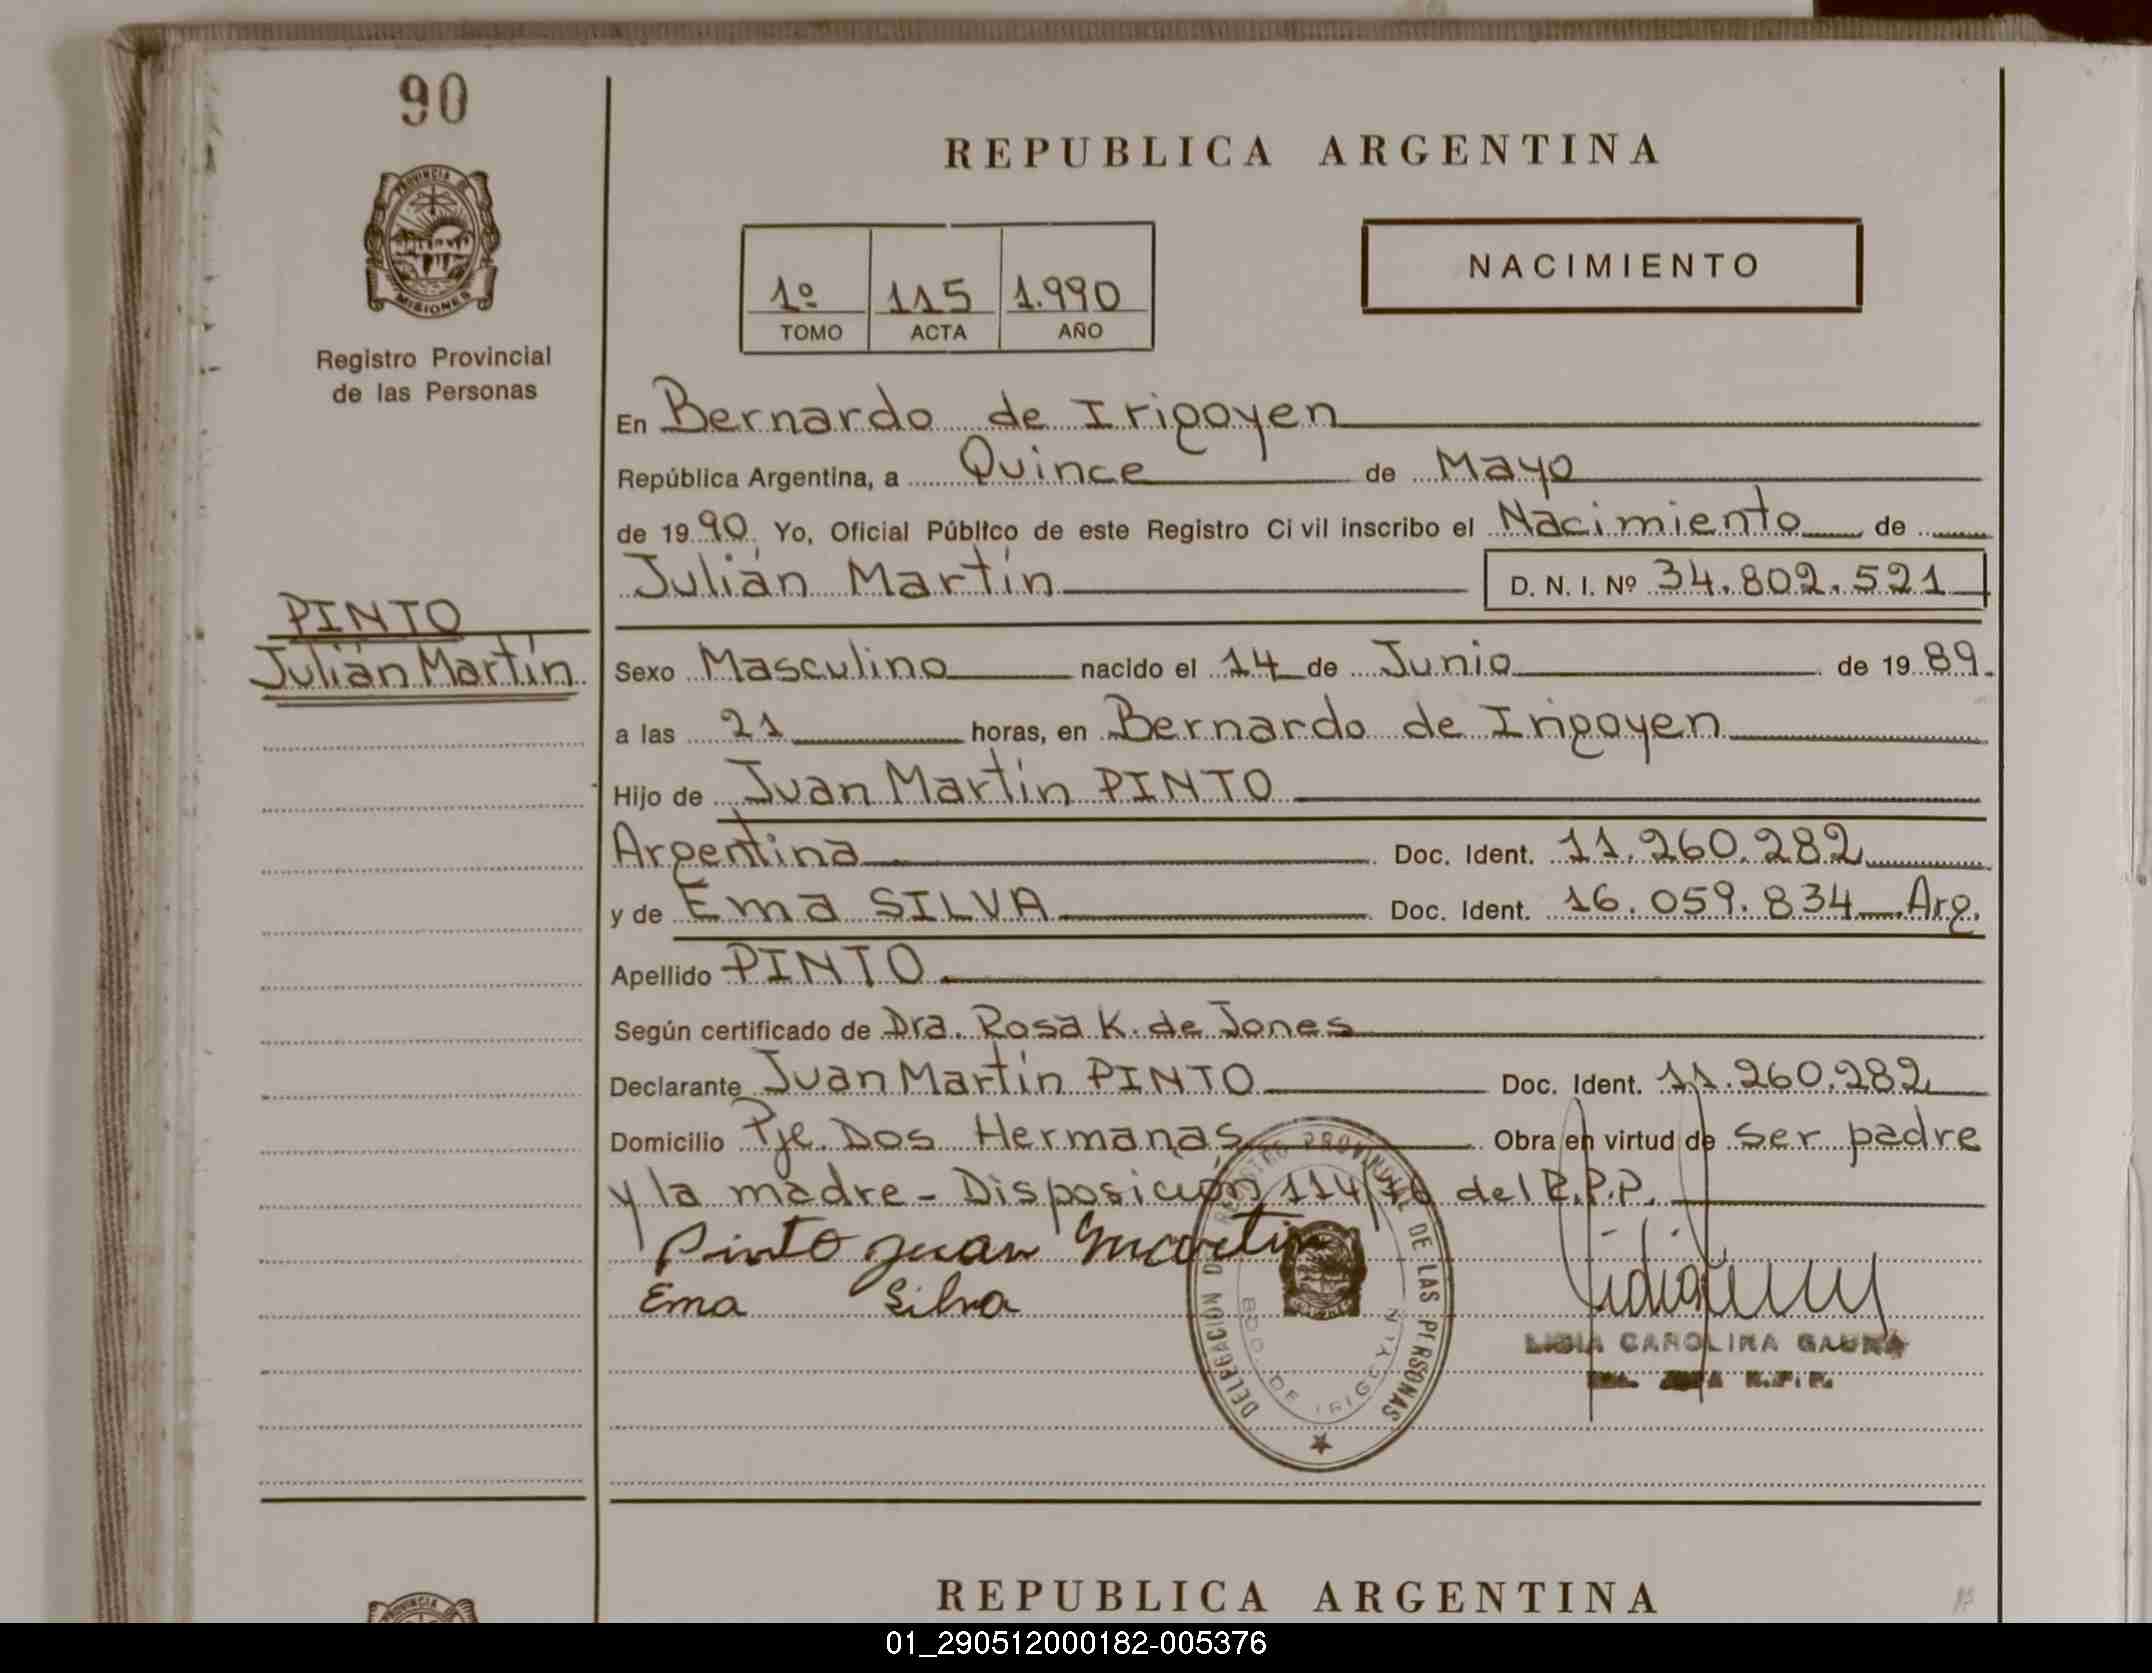 90
PROVINCIA DE
MISIONES
Registro Provincial
de las Personas
PINTO
Julián Martín
REPUBLICA ARGENTINA
1º 115 1.990
TOMO ACTA AÑO
NACIMIENTO
En Bernardo de Irigoyen
República Argentina, a Quince de Mayo
de 1990. Yo, Oficial Público de este Registro Civil inscribo el Nacimiento de
Julián Martín D. N. I. Nº 34.802.521
Sexo Masculino nacido el 14 de Junio de 1989.
a las 21 horas, en Bernardo de Irigoyen
Hijo de Juan Martín PINTO
Argentina Doc. Ident. 11.260.282
y de Ema SILVA Doc. Ident. 16.059.834 Arg.
Apellido PINTO
Según certificado de Dra. Rosa K. de Jones
Declarante Juan Martín PINTO Doc. Ident. 11.260.282
Domicilio Pje. Dos Hermanas Obra en virtud de ser padre
y la madre - Disposición 114/ del R.P.P.
Pinto Juan Martin
Ema Silva
DELEGACION DEL REGISTRO PROVINCIAL DE LAS PERSONAS
BDO. DE IRIGOYEN
LIDIA CAROLINA GAUNA
R.P.P.
REPUBLICA ARGENTINA
PROVINCIA
01_290512000182-005376